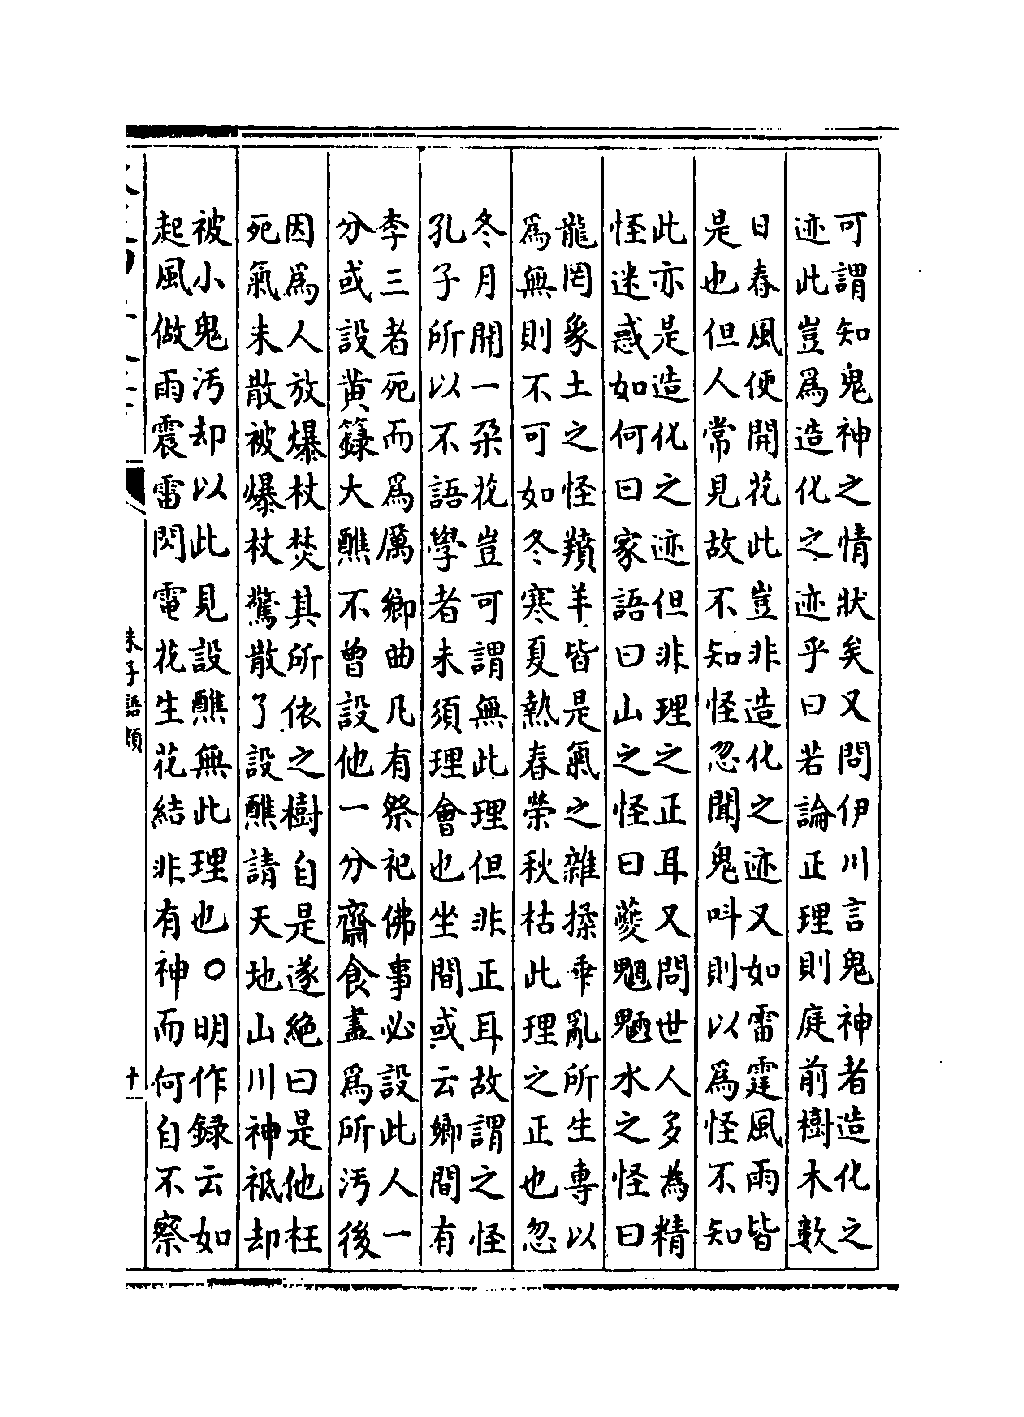 可謂知鬼神之情狀矣又問伊川言鬼神者造化之
迹此豈爲造化之迹乎曰若論正理則庭前樹木數
日春風便開花此豈非造化之迹又如雷霆風雨皆
是也但人常見故不知怪忽聞鬼叫則以爲怪不知
此亦是造化之迹但非理之正耳又問世人多為精
怪迷惑如何曰家語曰山之怪曰夔魍魎水之怪曰
龍罔象土之怪羵羊皆是氣之雜揉乖亂所生專以
爲無則不可如冬寒夏熱春榮秋枯此理之正也忽
冬月開一朶花豈可謂無此理但非正耳故謂之怪
孔子所以不語學者未須理會也坐間或云鄉間有
李三者死而爲厲鄉曲凡有祭祀佛事必設此人一
分或設黄籙大醮不曾設他一分齋食盡爲所汚後
因爲人放爆杖焚其所依之樹自是遂絶曰是他枉
死氣未散被爆杖驚散了設醮請天地山川神祇却
被小鬼汚却以此見設醮無此理也○明作録云如
起風做雨震雷閃電花生花結非有神而何自不察
朱子語類
十